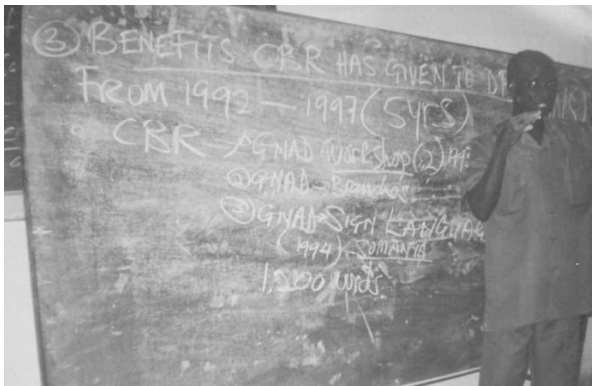 ③ BENEFITS CBR HAS GIVEN TO
FROM 1992 – 1997 (5yrs)
CBR → GNAD Workshop (2)
② GNAD - Branches
③ GNAD - SIGN LANGUAG
(1994)
1,200 words